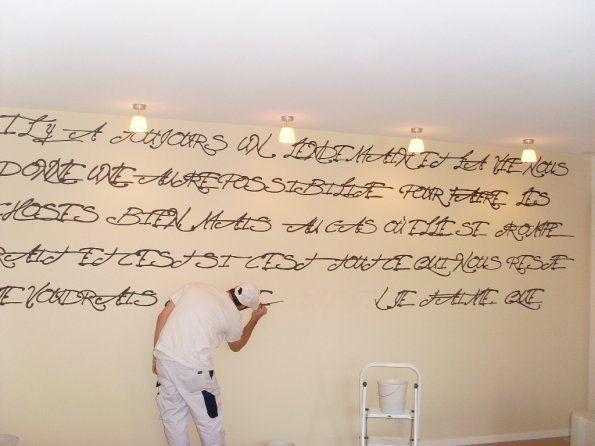 IL Y A TOUJOURS UN LENDEMAIN ET LA VIE NOUS
DONNE UNE AUTRE POSSIBILITE POUR FAIRE LES
CHOSES BIEN MAIS AU CAS OÙ ELLE SE TROMPE
RAIT ET C'EST SI C'EST TOUT CE QUI NOUS RESTE
JE VOUDRAIS E JE T'AIME QUE